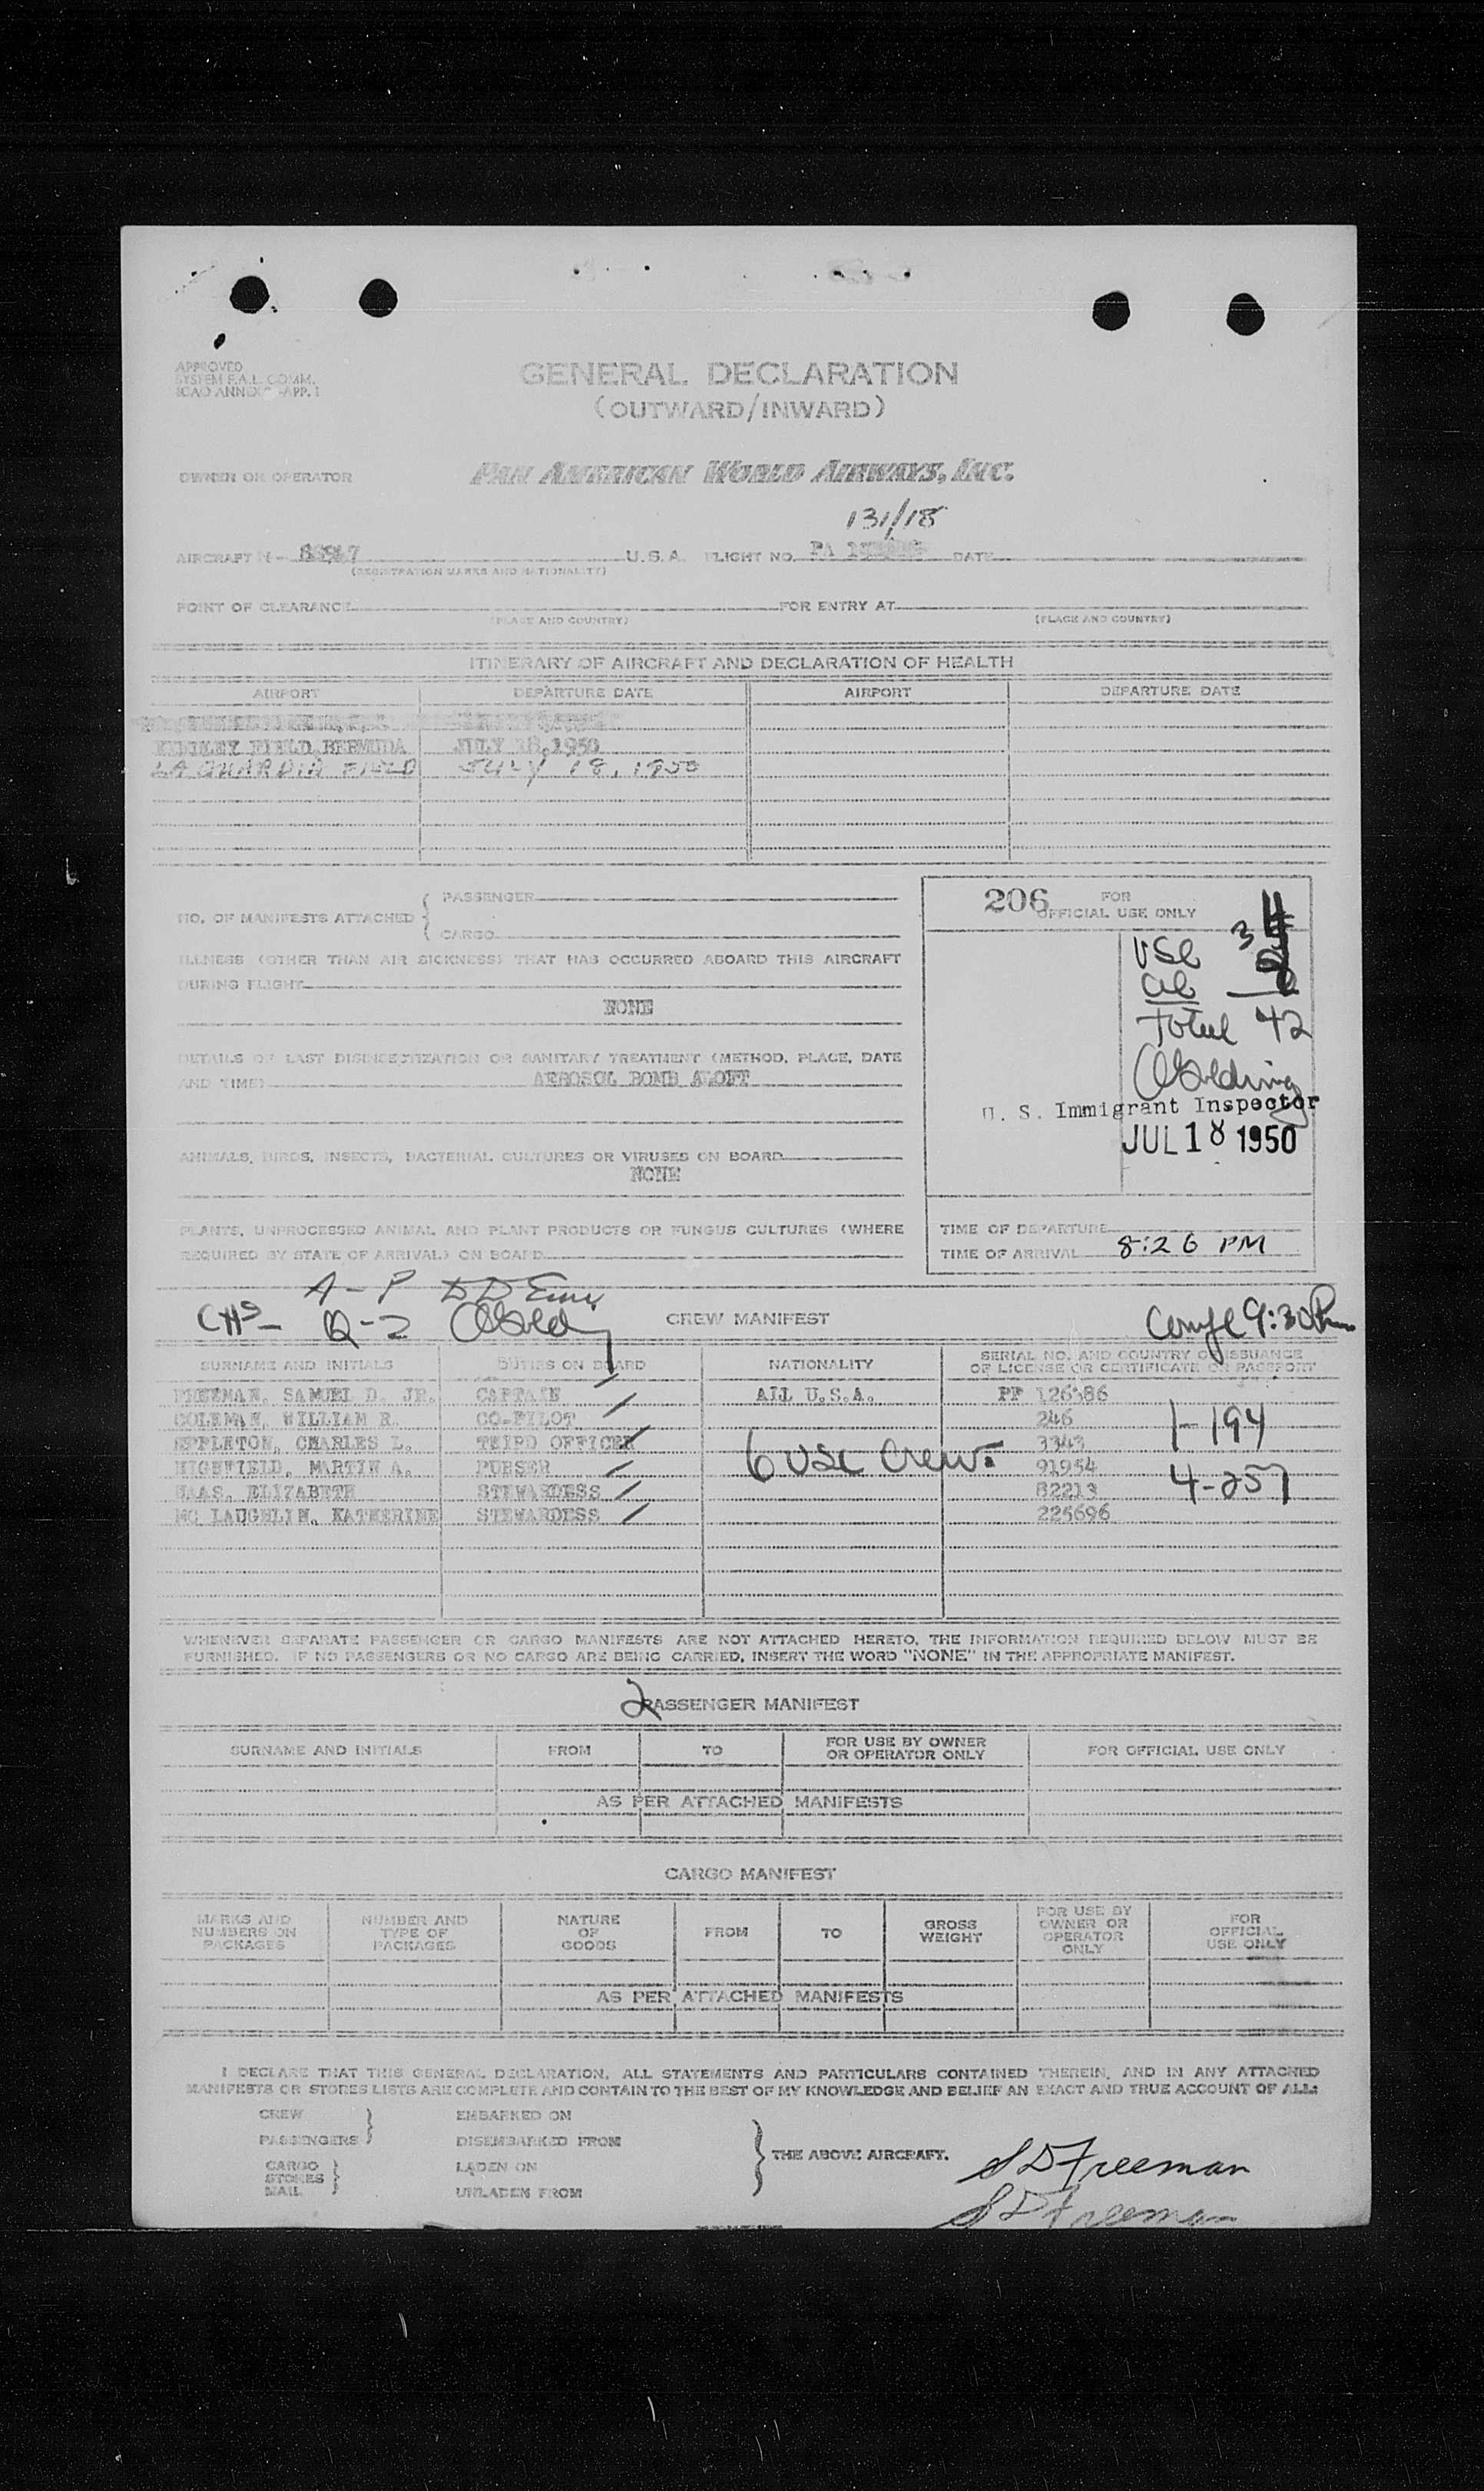 APPROVED
SYSTEM F.A.L. COMM.
ICAO ANNEX APP. 1
GENERAL DECLARATION
(OUTWARD/INWARD)
OWNER OR OPERATOR PAN AMERICAN WORLD AIRWAYS, INC.
131/18
AIRCRAFT N- U.S.A. FLIGHT NO. PA DATE
(REGISTRATION MARKS AND NATIONALITY)
POINT OF CLEARANCE FOR ENTRY AT
(PLACE AND COUNTRY) (PLACE AND COUNTRY)
ITINERARY OF AIRCRAFT AND DECLARATION OF HEALTH
AIRPORT DEPARTURE DATE AIRPORT DEPARTURE DATE
KINDLEY FIELD BERMUDA JULY 18, 1950
LA GUARDIA FIELD JULY 18, 1950
NO. OF MANIFESTS ATTACHED { PASSENGER
CARGO
ILLNESS (OTHER THAN AIR SICKNESS) THAT HAS OCCURRED ABOARD THIS AIRCRAFT
DURING FLIGHT
NONE
DETAILS OF LAST DISINSECTIZATION OR SANITARY TREATMENT (METHOD, PLACE, DATE
AND TIME) AEROSOL BOMB ALOFT
ANIMALS, BIRDS, INSECTS, BACTERIAL CULTURES OR VIRUSES ON BOARD
NONE
PLANTS, UNPROCESSED ANIMAL AND PLANT PRODUCTS OR FUNGUS CULTURES (WHERE
REQUIRED BY STATE OF ARRIVAL) ON BOARD
206 FOR
OFFICIAL USE ONLY
USC
Total 42
U. S. Immigrant Inspector
JUL 18 1950
TIME OF DEPARTURE
TIME OF ARRIVAL 8:26 PM
A-P
Q-2
CREW MANIFEST
9:30
SURNAME AND INITIALS DUTIES ON BOARD NATIONALITY SERIAL NO. AND COUNTRY OF ISSUANCE
OF LICENSE OR CERTIFICATE OR PASSPORT
FREEMAN, SAMUEL D. JR. CAPTAIN ALL U.S.A. PP 126386
COLEMAN, WILLIAM R. CO-PILOT 246 1-194
EPPLETON, CHARLES L. THIRD OFFICER 3343
HIGHFIELD, MARTIN A. PURSER 6 USC Crew 91954
HAAS, ELIZABETH STEWARDESS 82213 4-257
MC LAUGHLIN, KATHERINE STEWARDESS 225696
WHENEVER SEPARATE PASSENGER OR CARGO MANIFESTS ARE NOT ATTACHED HERETO, THE INFORMATION REQUIRED BELOW MUST BE
FURNISHED. IF NO PASSENGERS OR NO CARGO ARE BEING CARRIED, INSERT THE WORD "NONE" IN THE APPROPRIATE MANIFEST.
2 PASSENGER MANIFEST
SURNAME AND INITIALS FROM TO FOR USE BY OWNER
OR OPERATOR ONLY FOR OFFICIAL USE ONLY
AS PER ATTACHED MANIFESTS
CARGO MANIFEST
MARKS AND
NUMBERS ON
PACKAGES NUMBER AND
TYPE OF
PACKAGES NATURE
OF
GOODS FROM TO GROSS
WEIGHT FOR USE BY
OWNER OR
OPERATOR
ONLY FOR
OFFICIAL
USE ONLY
AS PER ATTACHED MANIFESTS
I DECLARE THAT THIS GENERAL DECLARATION, ALL STATEMENTS AND PARTICULARS CONTAINED THEREIN, AND IN ANY ATTACHED
MANIFESTS OR STORES LISTS ARE COMPLETE AND CONTAIN TO THE BEST OF MY KNOWLEDGE AND BELIEF AN EXACT AND TRUE ACCOUNT OF ALL:
CREW } EMBARKED ON
PASSENGERS DISEMBARKED FROM
CARGO LADEN ON } THE ABOVE AIRCRAFT.
STORES }
MAIL UNLADEN FROM
S D Freeman
S D Freeman